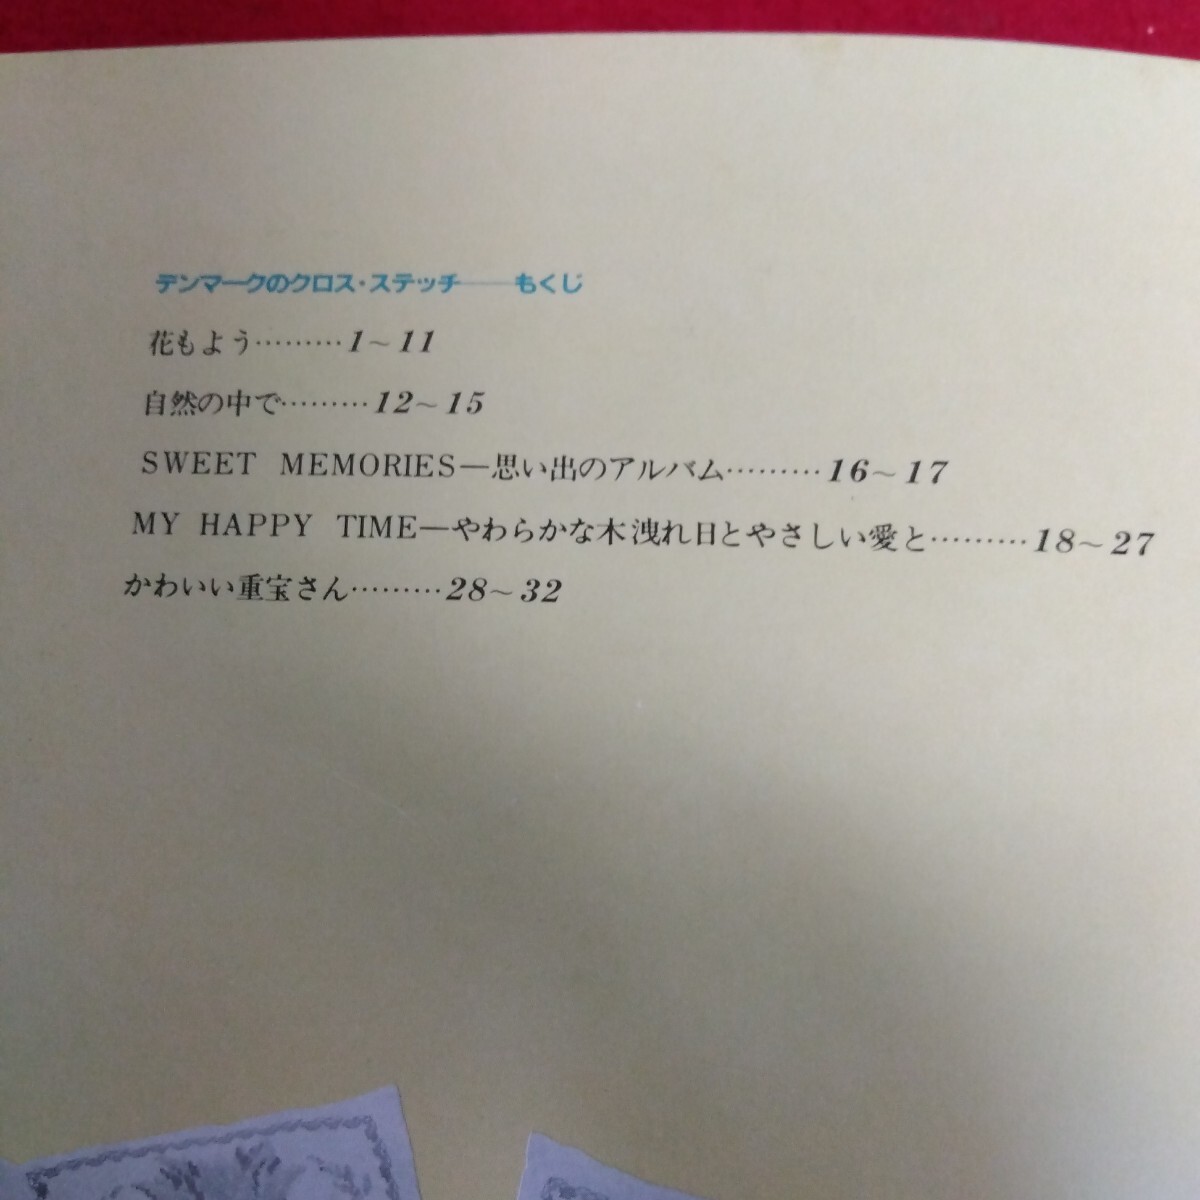 デンマークのクロス・ステッチ──もくじ
花もよう………1～11
自然の中で………12～15
SWEET MEMORIES―思い出のアルバム………16～17
MY HAPPY TIME―やわらかな木洩れ日とやさしい愛と………18～27
かわいい重宝さん………28～32